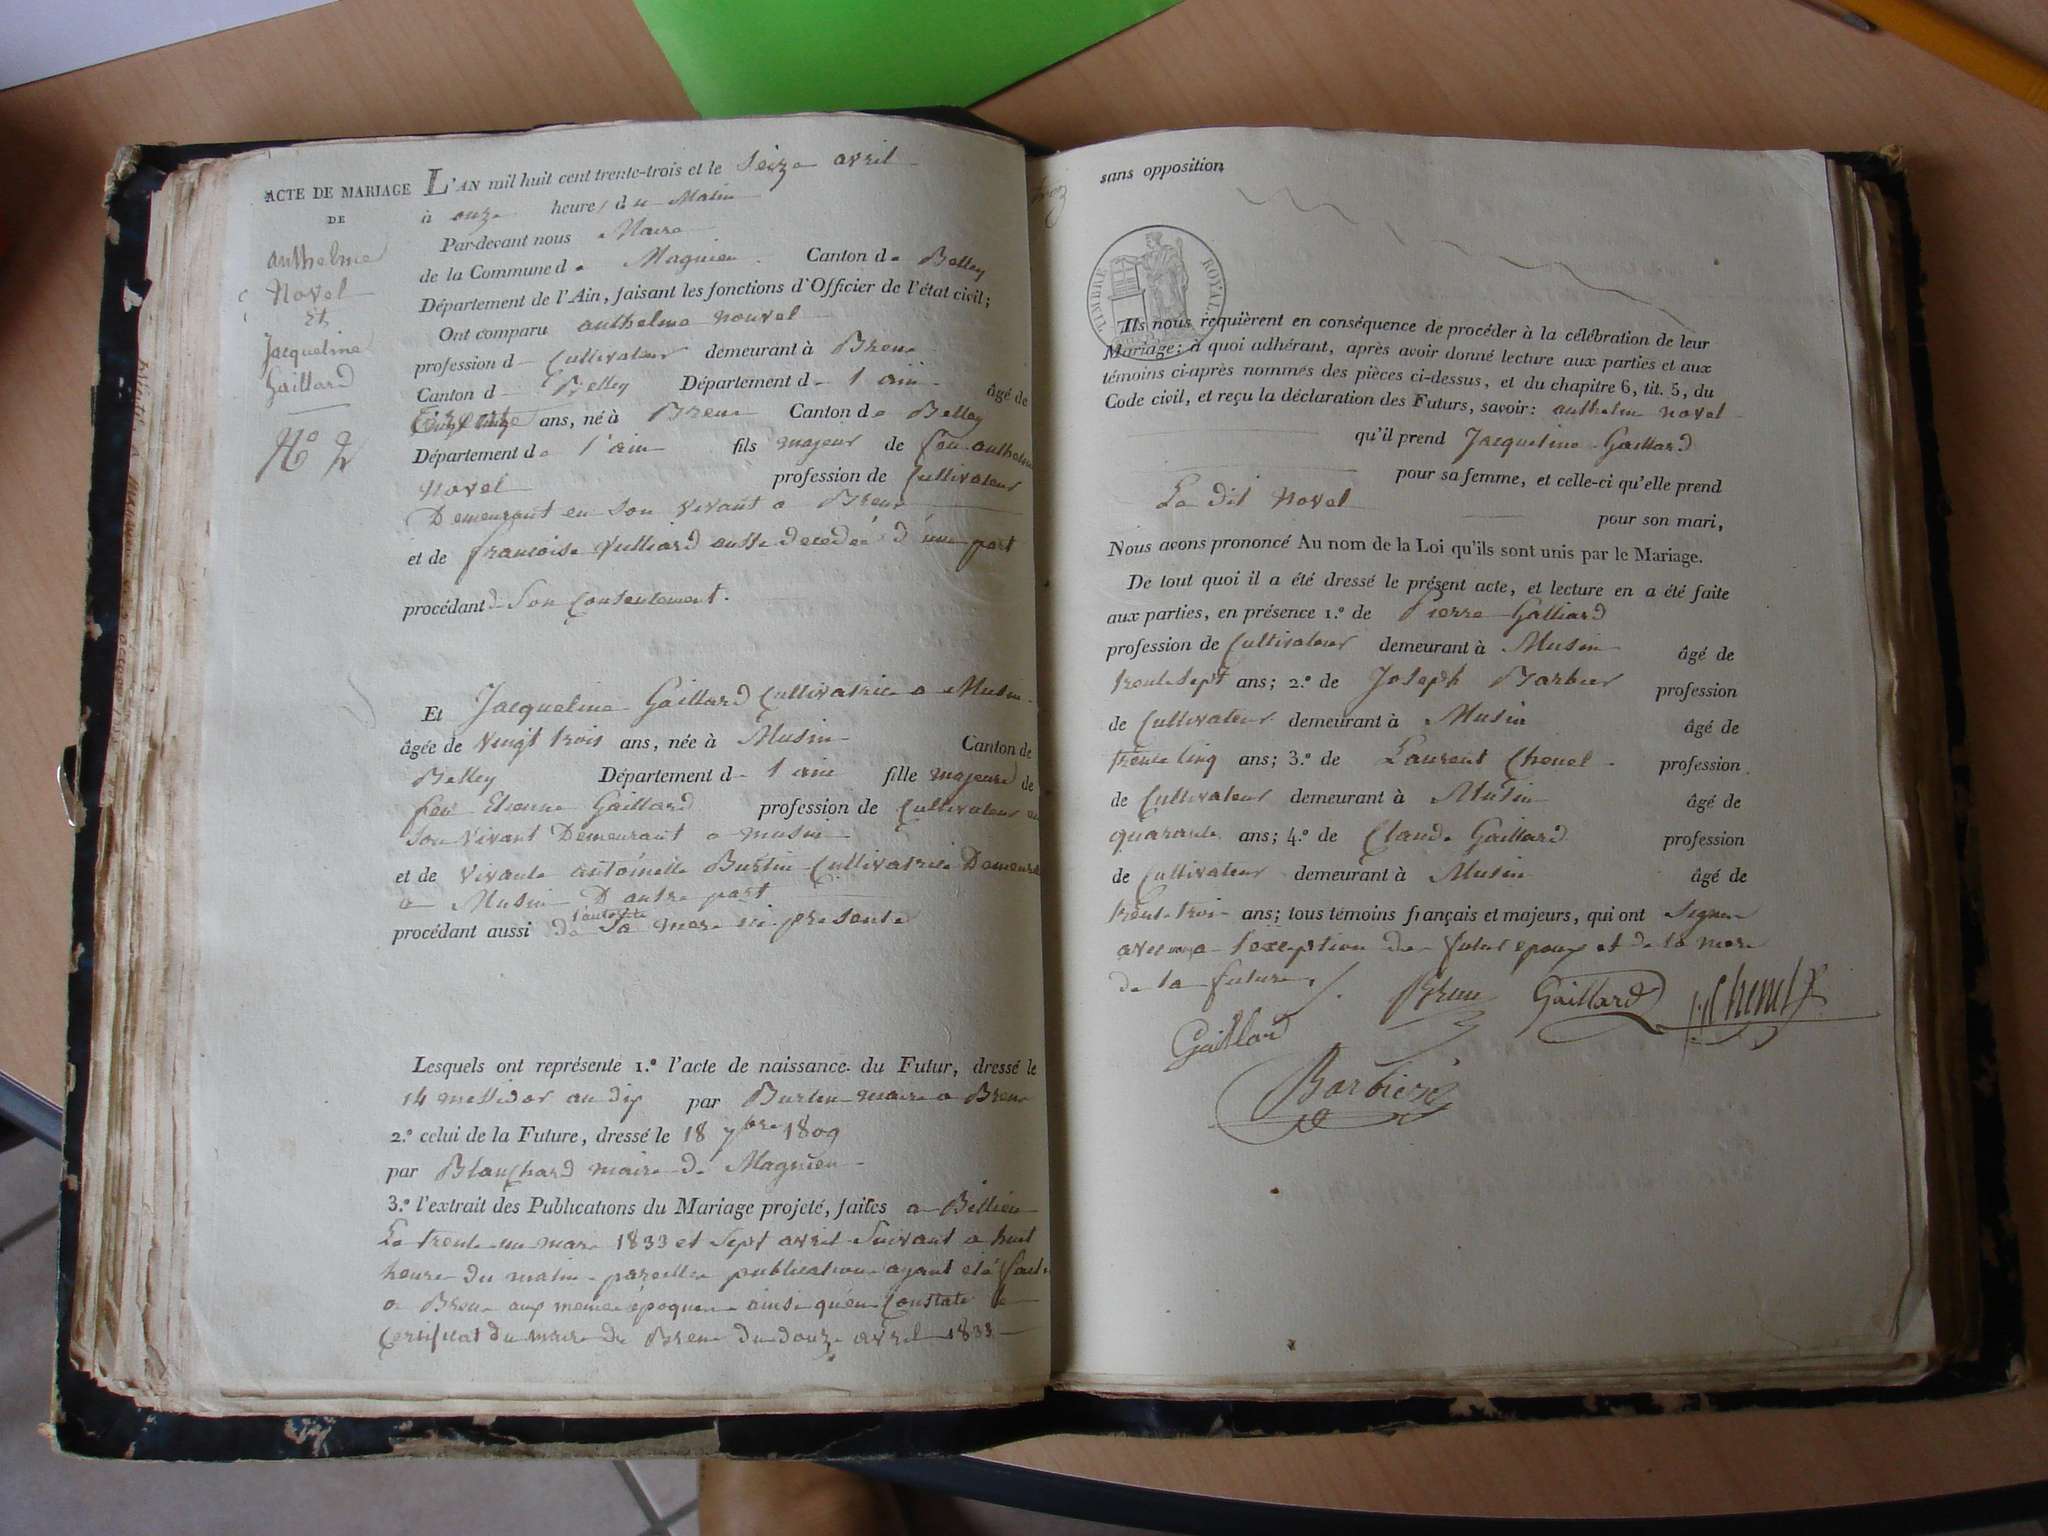 ACTE DE MARIAGE
DE
Anthelme
Novel
Et
Jacqueline
Gaillard
N.o 2
L'AN mil huit cent trente-trois et le Seize avril
à onze heures du Matin
Par-devant nous Maire
de la Commune de Magnieu Canton de Belley
Département de l'Ain, faisant les fonctions d'Officier de l'état civil;
Ont comparu anthelme nouvel
profession d Cultivateur demeurant à Brens
Canton d Belley Département d l'ain âgé de
ans, né à Brens Canton de Belley
Département de l'ain fils majeur de feu anthelme
Novel profession de Cultivateur
Demeurant en Son vivant a Brens
et de francoise Vulliard aussi decedée d'une part
procédant de Son Consentement.
Et Jacqueline Gaillard Cultivatrice a Musin
âgée de vingt trois ans, née à Musin Canton de
Belley Département d l'ain fille majeure de
feu Etienne Gaillard profession de Cultivateur en
Son vivant Demeurant a musin
et de vivante antoinette Burtin Cultivatrice Demeurant
a Musin D'autre part
procédant aussi de l'autorité Sa mere ici presente
Lesquels ont représenté 1.º l'acte de naissance du Futur, dressé le
14 messidor an dix par Burtin maire a Brens
2.º celui de la Future, dressé le 18 7bre 1809
par Blanchard maire de Magnieu
3.º l'extrait des Publications du Mariage projeté, faites a Billieu
Le trente un mars 1833 et Sept avril Suivant a huit
heure du matin pareille publication ayant eté faite
a Brens aux meme époque ainsi qu'en Constate le
Certificat du maire de Brens du douze avril 1833
sans opposition
TIMBRE ROYAL
Ils nous requièrent en conséquence de procéder à la célébration de leur
Mariage; à quoi adhérant, après avoir donné lecture aux parties et aux
témoins ci-après nommés des pièces ci-dessus, et du chapitre 6, tit. 5, du
Code civil, et reçu la déclaration des Futurs, savoir: anthelme novel
qu'il prend Jacqueline Gaillard
pour sa femme, et celle-ci qu'elle prend
Le dit Novel
pour son mari,
Nous avons prononcé Au nom de la Loi qu'ils sont unis par le Mariage.
De tout quoi il a été dressé le présent acte, et lecture en a été faite
aux parties, en présence 1.º de Pierre Galliard
profession de Cultivateur demeurant à Musin âgé de
trente Sept ans; 2.º de Joseph Barbier profession
de Cultivateur demeurant à Musin âgé de
trente Cinq ans; 3.º de Laurent Chenel profession
de Cultivateur demeurant à Musin âgé de
quarante ans; 4.º de Claude Gaillard profession
de Cultivateur demeurant à Musin âgé de
trente trois ans; tous témoins français et majeurs, qui ont Signer
avec nous a l'exeption de futur epoux et de la mere
de la future.
Brun Gaillard Chenel
Gaillard
Barbier